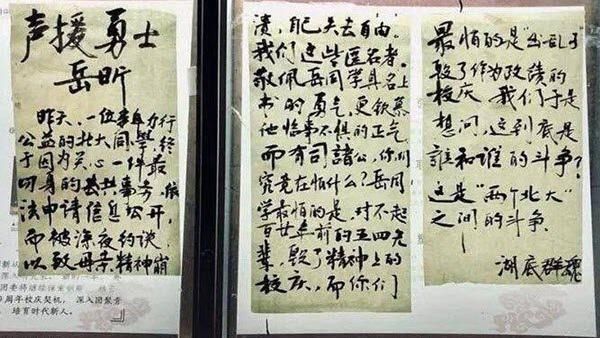 声援勇士
岳昕
昨天，一位力行
公益的北大同學，终
于因为关心一件最
切身的公共事务，依
法申请信息公开，
而被深夜约谈，
以致母亲精神崩
团委将继续
周年校庆契机，深入团聚青
培育时代新人。
溃，自己失去自由。
我们这些匿名者，
敬佩岳同学具名上
书的勇气，更钦慕
他临事不惧的正气，
而有司諸公，你们
究竟在怕什么？岳同
学最怕的是，对不起
百廿年前的五四先
辈，毁了精神上的
校庆，而你们
最怕的是“出乱子”
毁了作为政绩的
校庆。我们于是
想问，这到底是
誰和谁的斗争？
这是“两个北大”
之间的斗争。
湖底群魂